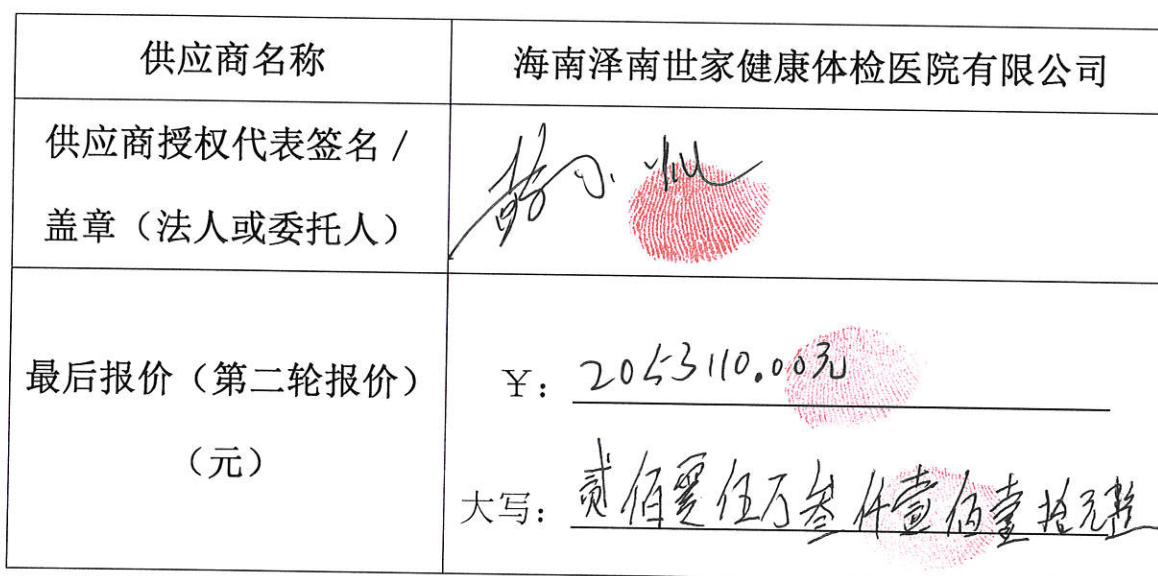 供应商名称
海南泽南世家健康体检医院有限公司
供应商授权代表签名/
盖章（法人或委托人）
最后报价（第二轮报价）
（元）
¥：2053110.00元
大写：贰佰零伍万叁仟壹佰壹拾元整